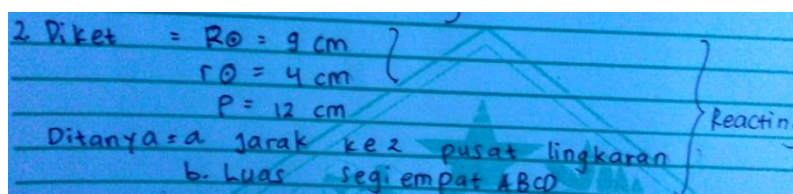 2. Diket = R⊙ = 9 cm
r⊙ = 4 cm
P = 12 cm
Ditanya = a Jarak ke 2 pusat lingkaran
b. Luas segi empat ABCD
Reactin